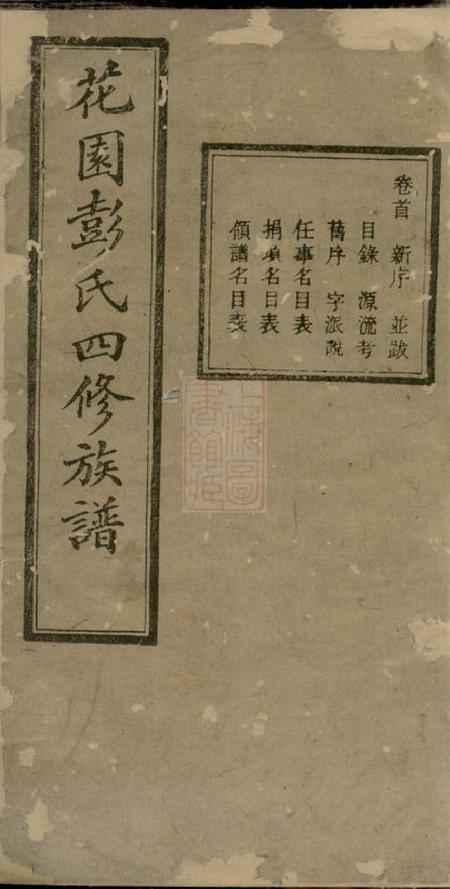 卷首 新序 並跋
目錄 源流考
舊序 字派說
任事名目表
捐項名目表
領譜名目表
花園彭氏四修族譜
上海圖
書館藏